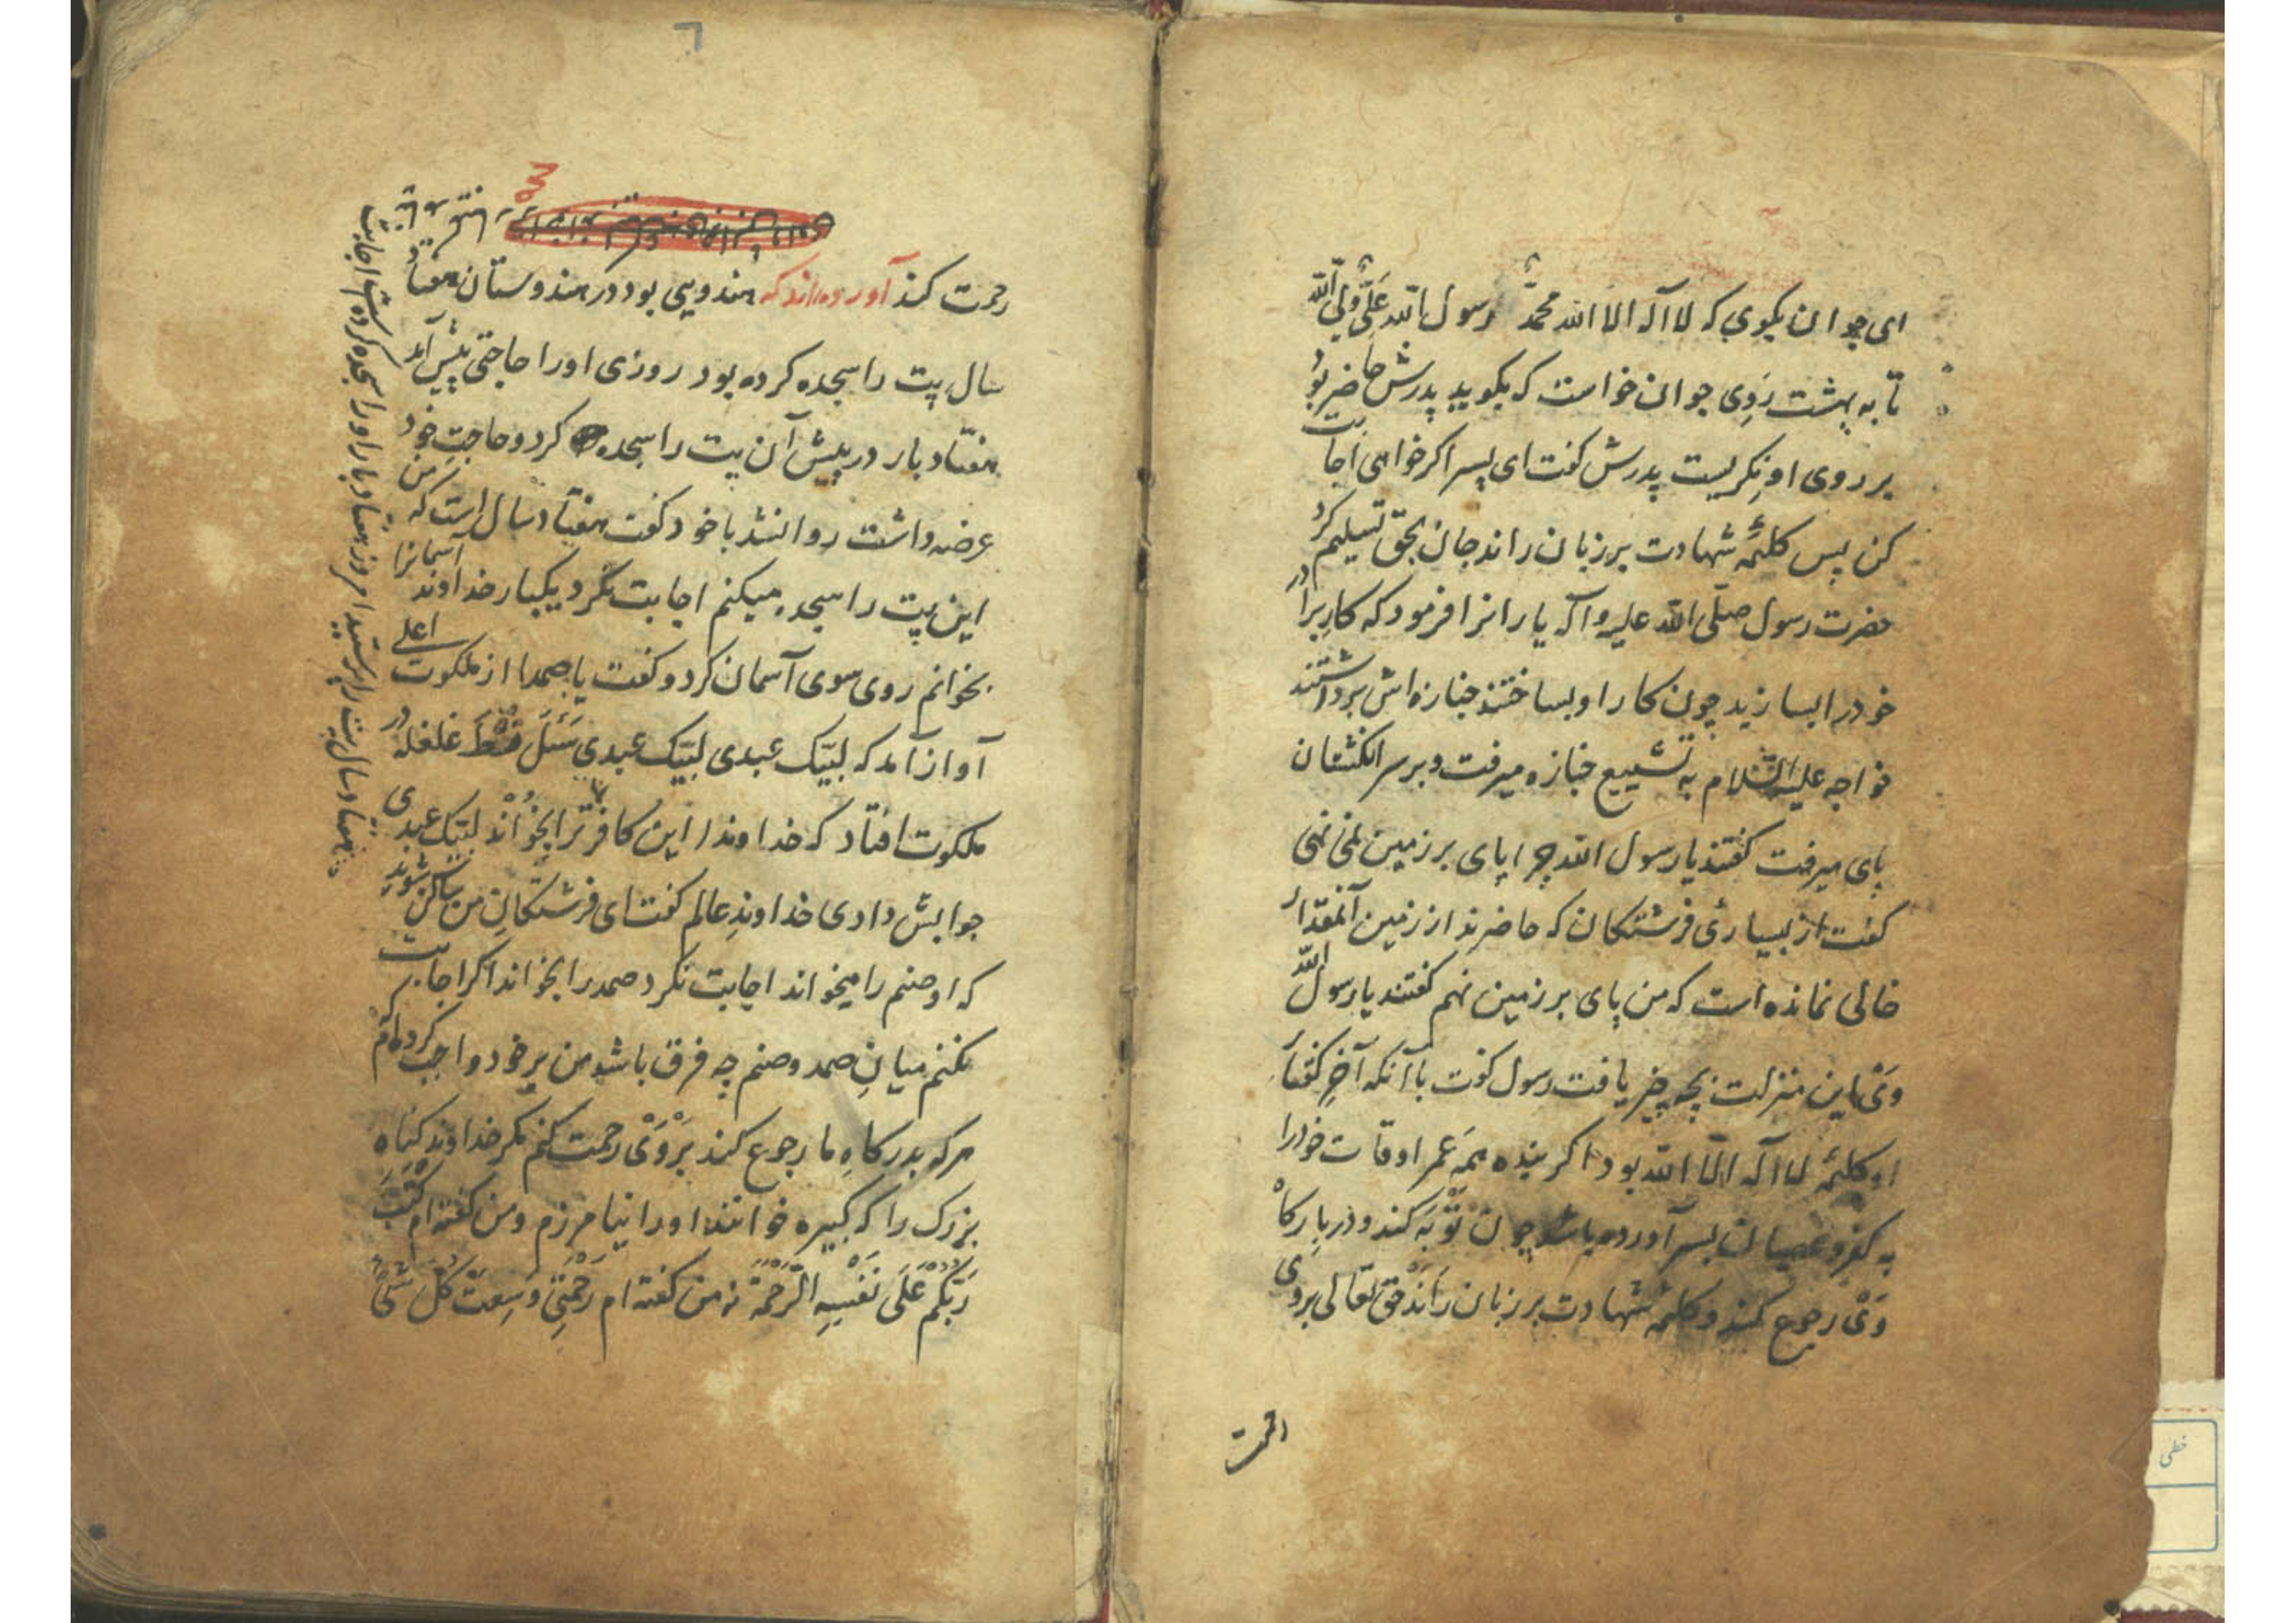 ای جوان بکوی که لا اله الا الله محمدٌ رسول الله علیٌّ ولیّ الله
تا به بهشت رَوِی جوان خواست که بکوید پدرش حاضر بود
بر روی او نِکریست پدرش کفت ای پسر اکر خواهی اجابت
کن پس کلمهٔ شهادت بر زبان راند جان بحق تسلیم کرد
حضرت رسول صلّی الله علیه وآله یارانرا فرمود که کارِ برادر
خود را بسازید چون کار او بساختند جنازه اش برداشتند
خواجه علیه السّلام به تشییع جنازه میرفت و بر سر انکشتان
پای میرفت کفتند یا رسول الله چرا پای بر زمین نمی نهی
کفت از بسیاریٔ فرشتکان که حاضرند از زمین آنمقدار
خالی نمانده است که من پای بر زمین نهم کفتند یا رسول الله
وَیْ این منزلت بچه چیز یافت رسول کفت با آنکه آخرِ کفتار
او کلمهٔ لا اله الّا الله بود اکر بنده همه عمر اوقات خود را
به کفر و عصیان بسر آورده باشد چون تَوْبَه کند و در بارکاهْ
وَیْ رجوع کند و کلمهٔ شهادت بر زبان رَانَدْ حق تعالی بروی
رحمت
رحمت کند آورده اند که هندویی بود در هندوستان هفتاد
سال پت را سجده کرده بود روزی او را حاجتی پیش آمد
هفتاد بار در پیش آن پت را سجده کرد و حاجتِ خود
عرضه داشت روا نشد با خود کفت هفتاد سال است که من
این پت را سجده میکنم اجابت نکرد یکبار خداوند آسمانرا
بخوانم روی سوی آسمان کرد و کفت یا صمدا از ملکوت اعلی
آواز آمد که لبّیک عبدی لبّیک عبدی سَئَل غلغله در
ملکوت افتاد که خداوندا این کافر ترا بخُوانْد لبّیک عبدی
جوابش دادی خداوندِ عالم کفت ای فرشتکانِ من ساکن شوید
که او صنم را میخواند اجابت نکرد صمد را بخواند اکر اجابت
نکنم میانِ صمد و صنم چه فرق باشد من بر خود واجب کرده ام که
هر که بدرکاهِ ما رجوع کند بَرْوَیْ رحمت کنم مکر خداوند کناه
بزرک را که کبیره خوانند او را نیامرزم و من کفته ام کَتَبَ
رَبُّکُمْ عَلَی نَفْسِهِ الرَّحْمَةَ نه من کفته ام رَحْمَتِی وَسِعَتْ کُلَّ شَیْءٍ
هفتاد سال پت را پرستید امروز هفتاد بار او را سجده کرده است اجابت
خطی